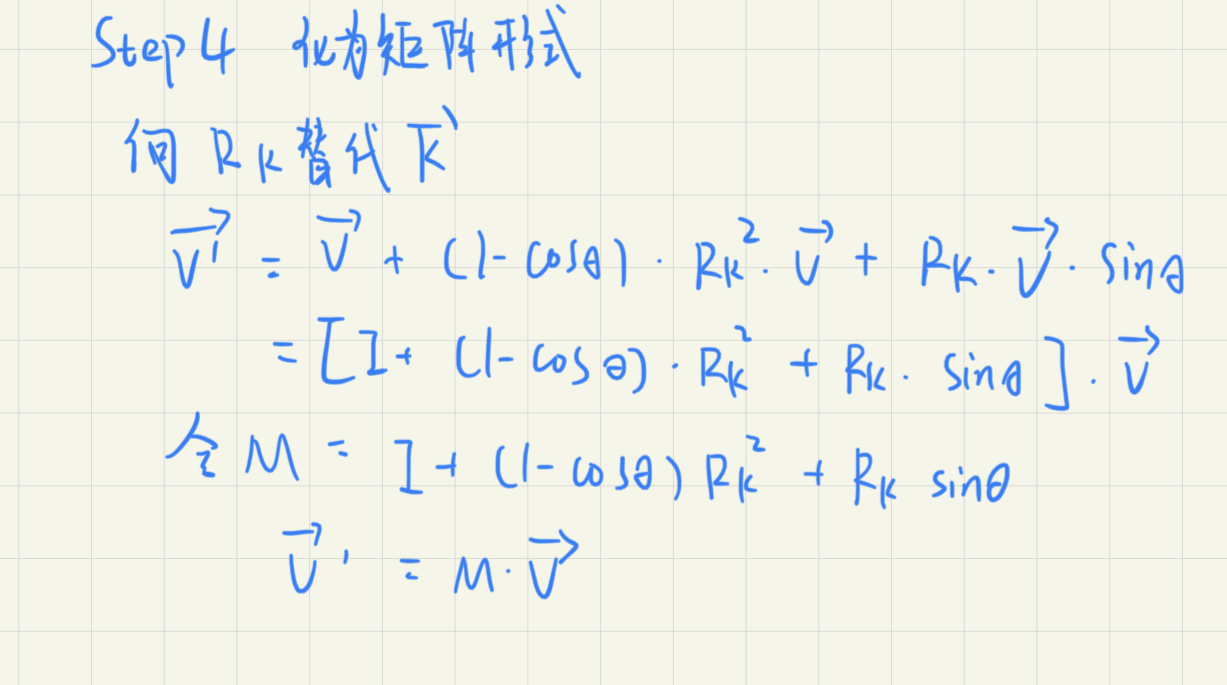 Step 4 化为矩阵形式
何 Rₖ替代 k⃗
v⃗' = v⃗ + (1-cosθ) · Rₖ² · v⃗ + Rₖ · v⃗ · sinθ
= [I + (1-cosθ) · Rₖ² + Rₖ · sinθ] · v⃗
令 M = I + (1-cosθ) Rₖ² + Rₖ sinθ
v⃗' = M · v⃗